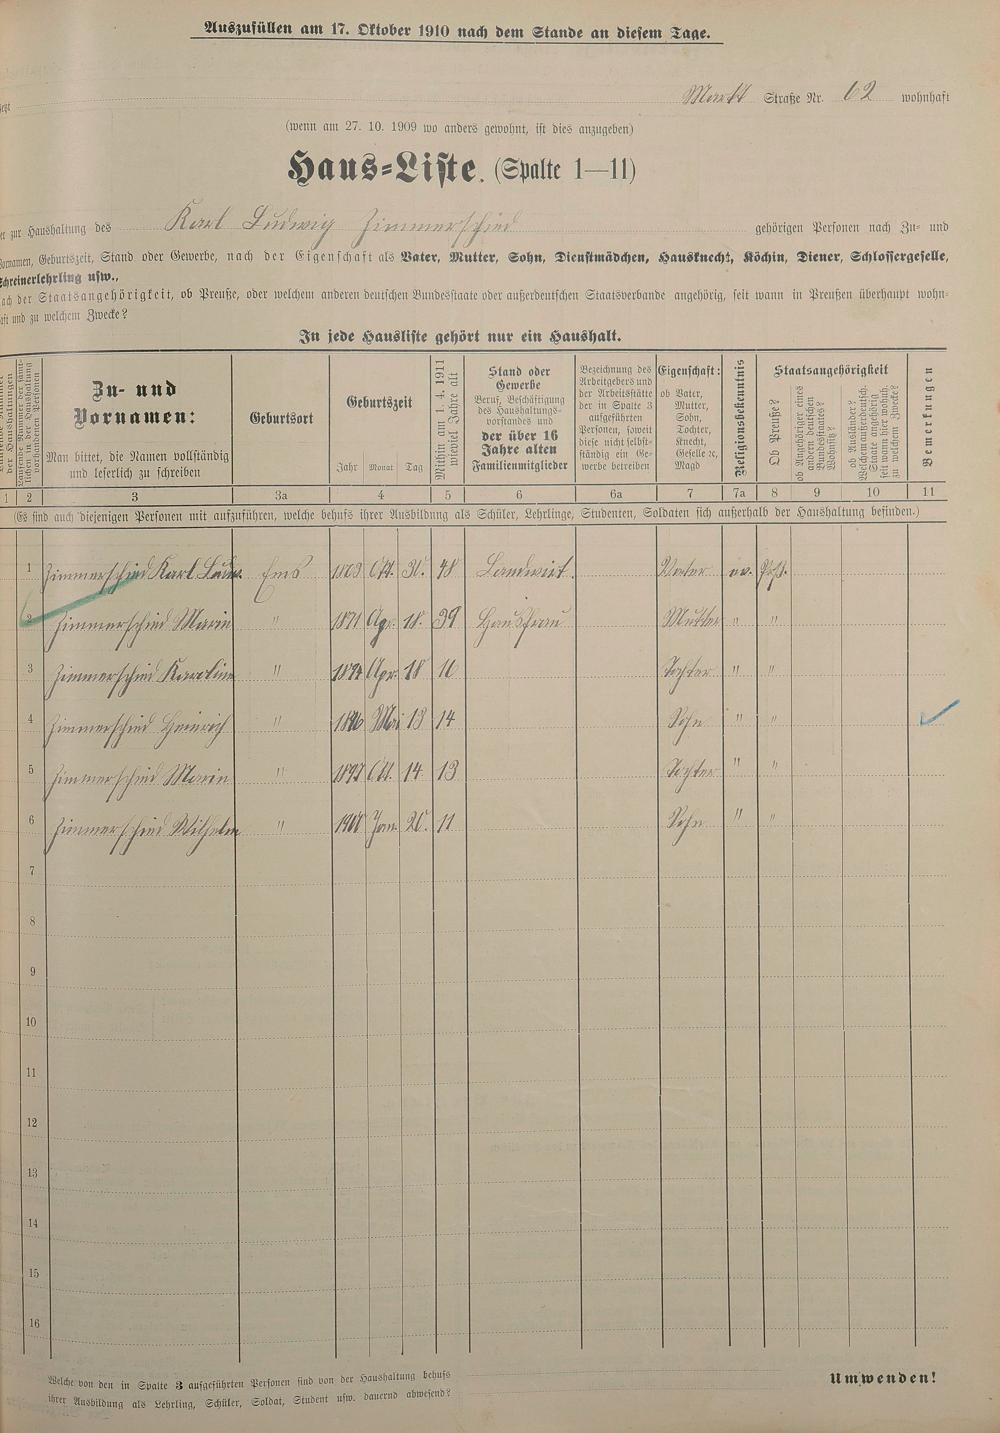 Auszufüllen am 17. Oktober 1910 nach dem Stande an diesem Tage.
Markt Straße Nr. 62 wohnhaft
(wenn am 27. 10. 1909 wo anders gewohnt, ist dies anzugeben)
Haus-Liste. (Spalte 1—11)
zur Haushaltung des Karl Ludwig Zimmerschied gehörigen Personen nach Zu- und
Vornamen, Geburtszeit, Stand oder Gewerbe, nach der Eigenschaft als Vater, Mutter, Sohn, Dienstmädchen, Hausknecht, Köchin, Diener, Schlossergeselle,
Schreinerlehrling usw.,
nach der Staatsangehörigkeit, ob Preuße, oder welchem anderen deutschen Bundesstaate oder außerdeutschen Staatsverbande angehörig, seit wann in Preußen überhaupt wohn-
haft und zu welchem Zwecke?
In jede Hausliste gehört nur ein Haushalt.
der Haushaltungen
Laufende Nummer der sämt-
lichen in der Haushaltung
vorhandenen Personen
Zu- und
Vornamen:
Man bittet, die Namen vollständig
und leserlich zu schreiben
Geburtsort
Geburtszeit
Jahr Monat Tag
Mithin am 1. 4. 1911
wieviel Jahre alt
Stand oder
Gewerbe
Beruf, Beschäftigung
des Haushaltungs-
vorstandes und
der über 16
Jahre alten
Familienmitglieder
Bezeichnung des
Arbeitgebers und
der Arbeitsstätte
der in Spalte 3
aufgeführten
Personen, soweit
diese nicht selbst-
ständig ein Ge-
werbe betreiben
Eigenschaft:
ob Vater,
Mutter,
Sohn,
Tochter,
Knecht,
Geselle ec,
Magd
Religionsbekenntnis
Staatsangehörigkeit
Ob Preuße?
ob Angehöriger eines
andern deutschen
Bundesstaates?
Wohnsitz?
ob Ausländer?
Welchem außerdeutsch.
Staate angehörig
seit wann hier wohnh.
zu welchem Zwecke?
Bemerkungen
1 2 3 3a 4 5 6 6a 7 7a 8 9 10 11
(Es sind auch diejenigen Personen mit aufzuführen, welche behufs ihrer Ausbildung als Schüler, Lehrlinge, Studenten, Soldaten sich außerhalb der Haushaltung befinden.)
1 Zimmerschied Karl Ludw. Ems Okt. 30. 48 Landwirt. Vater ev.
2 Zimmerschied Marie " 1871 Apr. 18. 39 Hausfrau Mutter " "
3 Zimmerschied Karoline " 1894 Apr. 18 16 Tochter " "
4 Zimmerschied Heinrich " 1896 Mai 13 14 Sohn " "
5 Zimmerschied Marie " 1897 Okt. 14. 13 Tochter " "
6 Zimmerschied Wilhelm " Jan. 20. 11 Sohn " "
7
8
9
10
11
12
13
14
15
16
Welche von den in Spalte 3 aufgeführten Personen sind von der Haushaltung behufs
ihrer Ausbildung als Lehrling, Schüler, Soldat, Student usw. dauernd abwesend?
Umwenden!